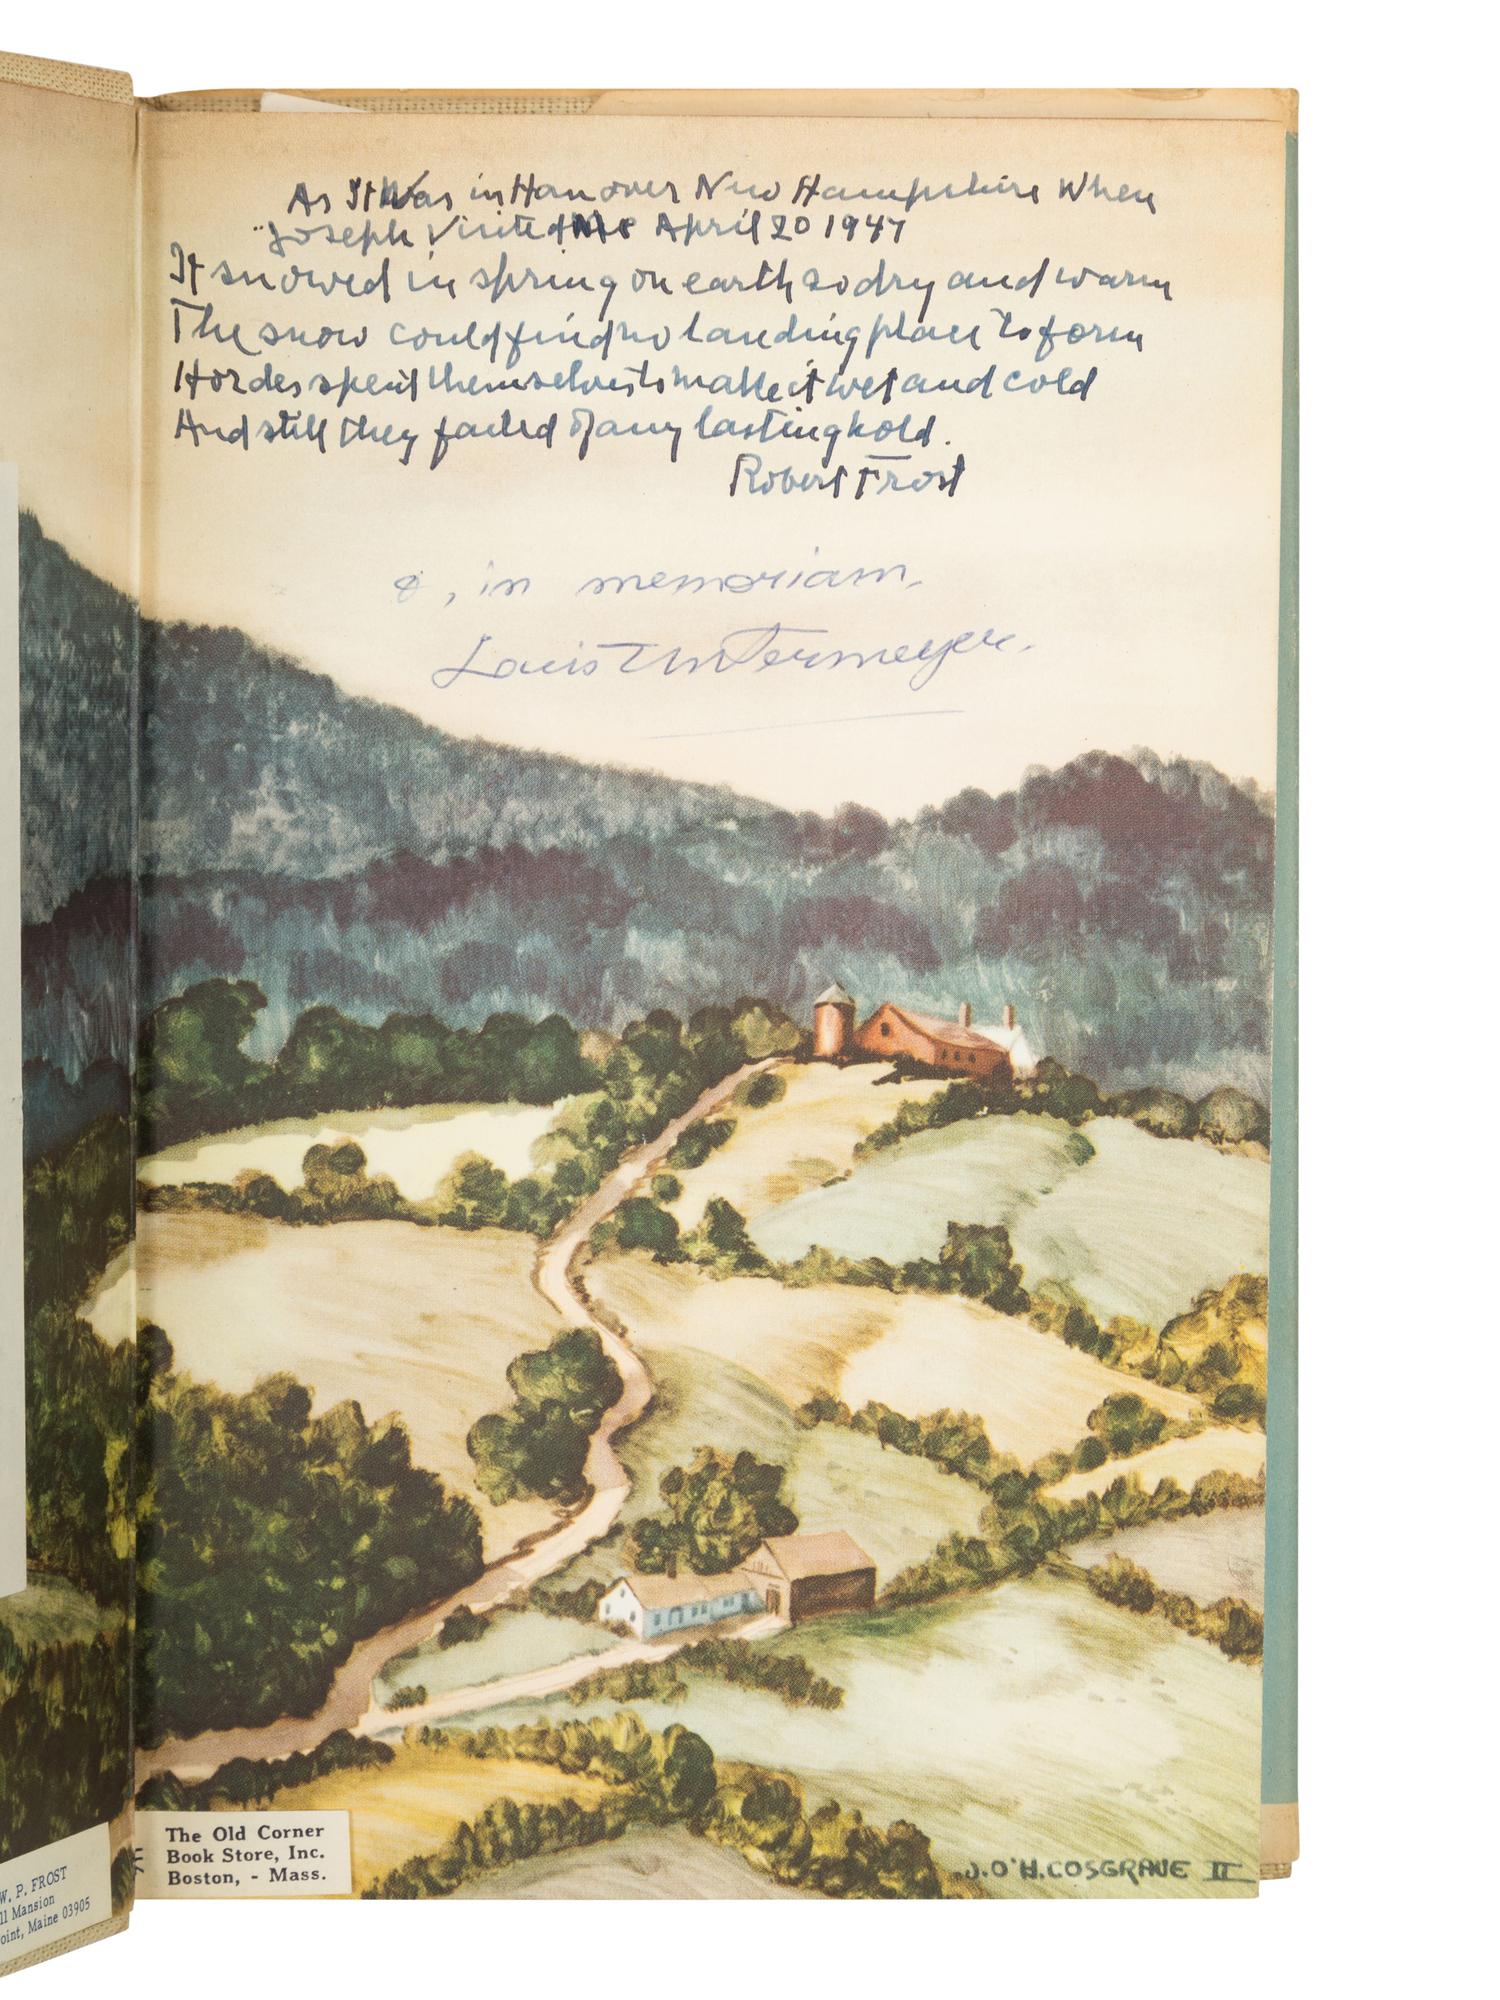 As It Was in Hanover New Hampshire When
Joseph Visited Me April 20 1947
It snowed in spring on earth so dry and warm
The snow could find no landing place to form
Hordes spent themselves to make it wet and cold
And still they failed of any lasting hold.
Robert Frost
&, in memoriam,
Louis Untermeyer.
The Old Corner
Book Store, Inc.
Boston, - Mass.
J. O'H. COSGRAVE II
W. P. FROST
ll Mansion
oint, Maine 03905